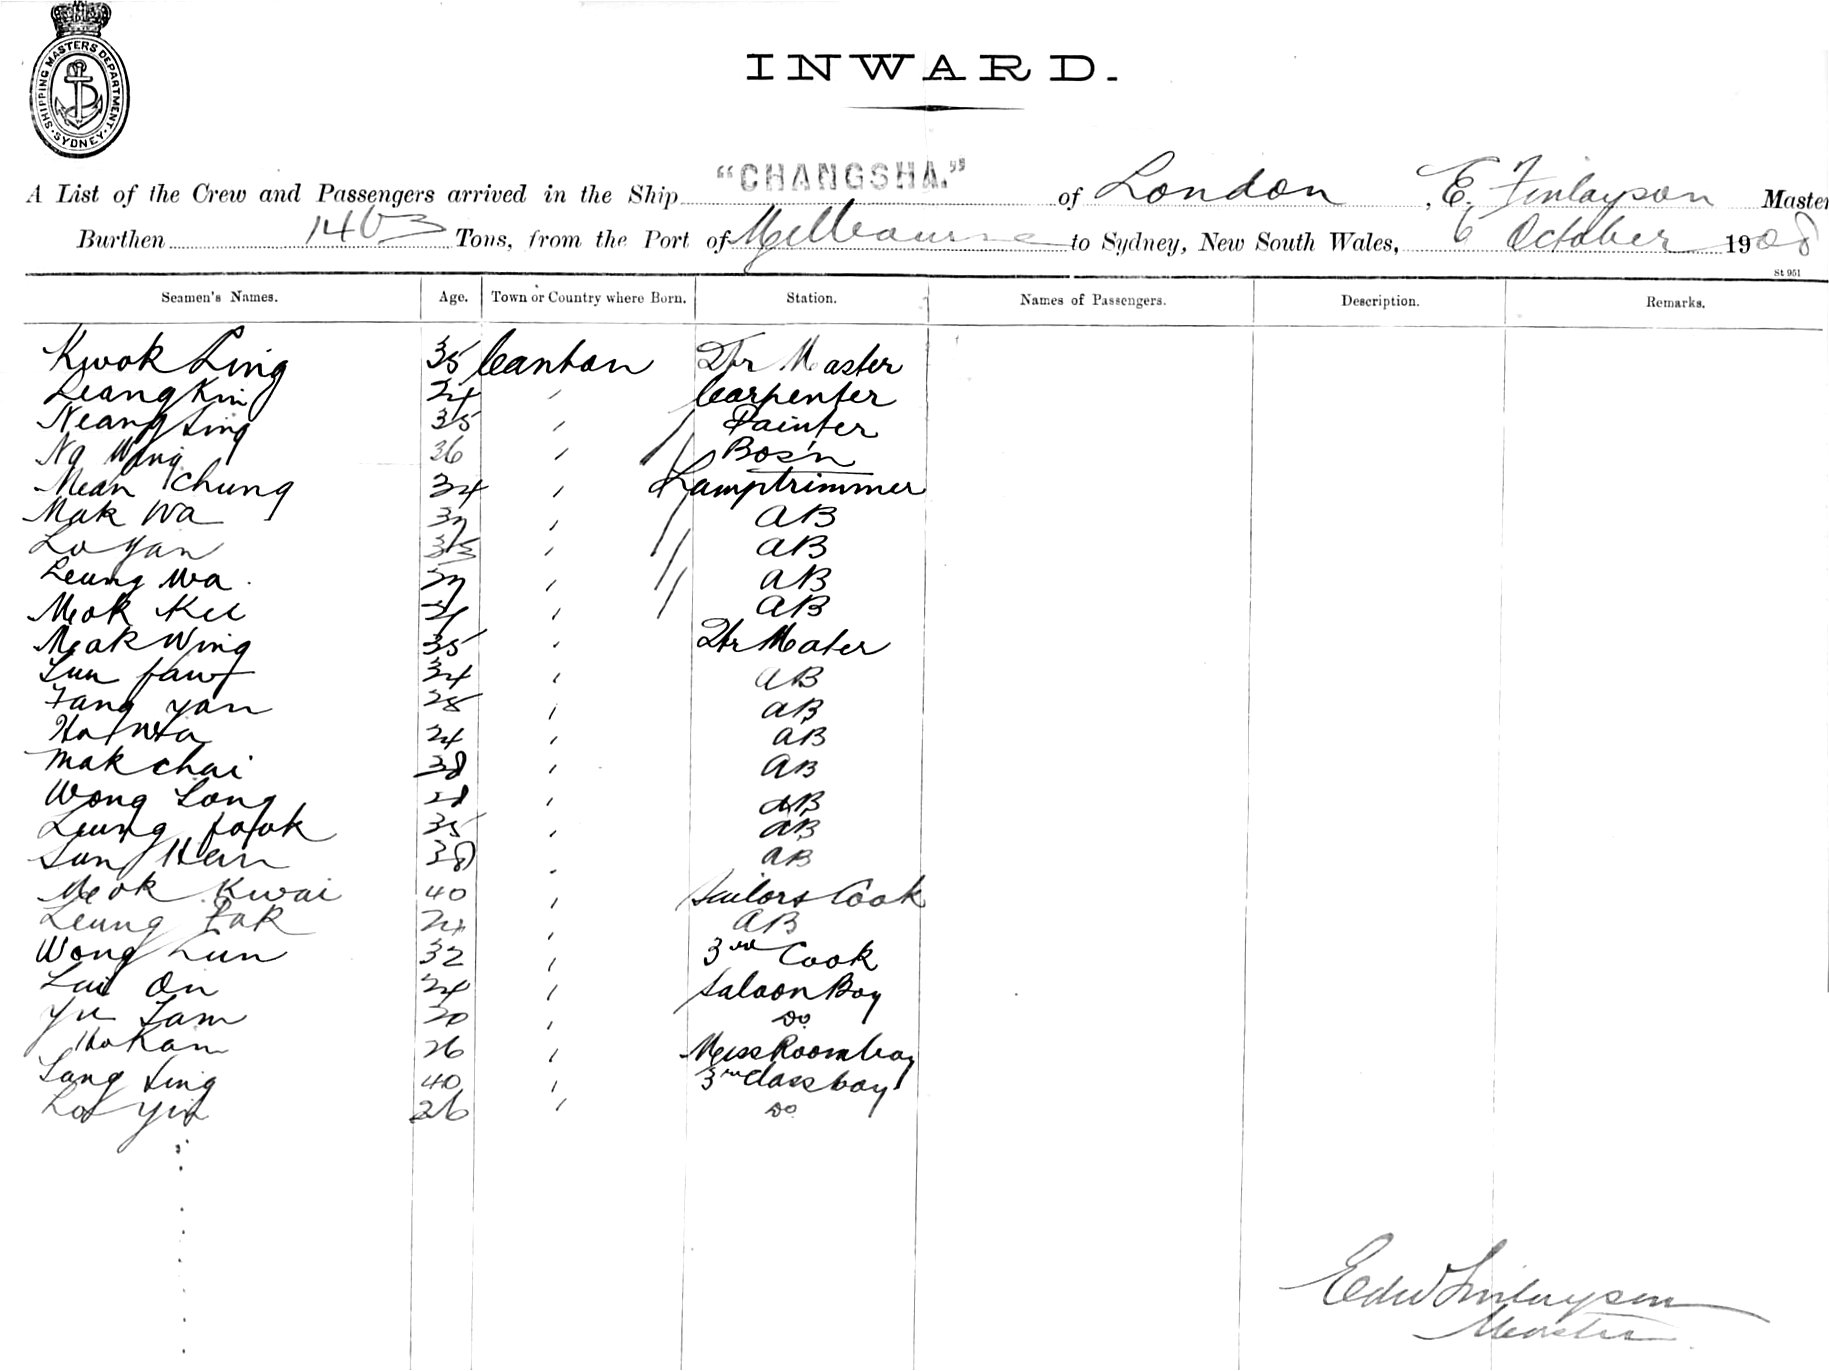 SHIPPING MASTERS DEPARTMENT · SYDNEY ·
INWARD.
A List of the Crew and Passengers arrived in the Ship "CHANGSHA." of London, E. Finlayson Master
Burthen 1463 Tons, from the Port of Melbourne to Sydney, New South Wales, 6 October 1908
St 951
Seamen's Names. Age. Town or Country where Born. Station. Names of Passengers. Description. Remarks.
Kwok Ling 35 Canton Qtr Master
Leang Kin 24 " Carpenter
Neang Sing 35 " Painter
Ng Wing 36 " Bos'n
Mean Chung 34 " Lamptrimmer
Mak Wa " AB
Lo Yan 33 " AB
Leung Wa " AB
Mok Kee " AB
Mak Wing 35 " Qtr Mater
Lun 34 " AB
Fang Yan 28 " AB
Ho Wa 24 " AB
Mak Chai 38 " AB
Wong Song 28 " AB
Leung 35 " AB
38 " AB
Mok Kwai 40 " Sailors Cook
Leung Fak 24 " AB
Wong Lun 32 " 3rd Cook
Lui On 24 " Saloon Boy
Yu Tam 20 " Do
Ho Kam 26 " Mess Room boy
Sang Sing 40 " 3rd Class boy
Lo Yin 26 " Do
Edw Finlayson
Master